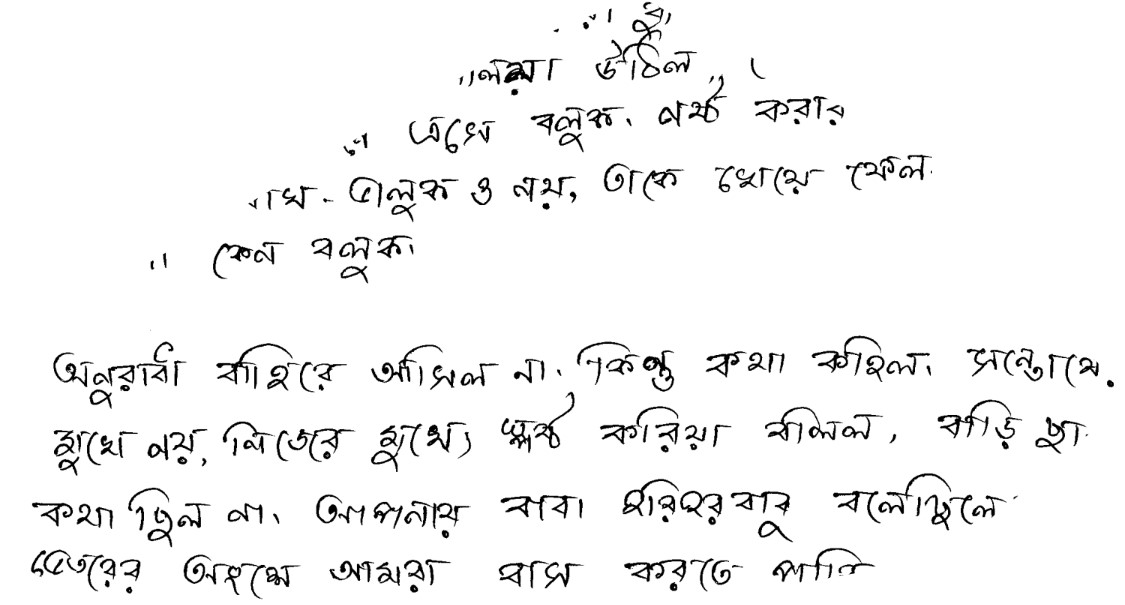 উঠিল
বলুক। নষ্ট করার
ভালুক ও নয়, তাকে খেয়ে ফেল
কেন বলুক।
অনুরাধা বাহিরে আসিল না, কিন্তু কথা কহিল। সন্তোষে
মুখে নয়, নিজের মুখে, স্পষ্ট করিয়া বলিল, বাড়ি ছা
কথা ছিল না। আপনার বাবা হরিহরবাবু বলেছিলে
ভেতরের অংশে আমরা বাস করতে পারি